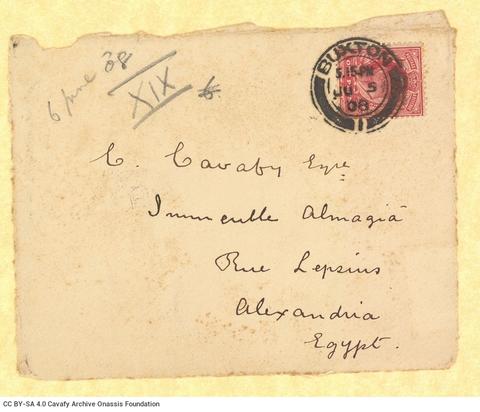 6 june 08
XIX
6
BUXTON
5.15 PM
JU 5
08
C. Cavafy Esqre
Immeuble Almagià
Rue Lepsius
Alexandria
Egypt.
CC BY-SA 4.0 Cavafy Archive Onassis Foundation